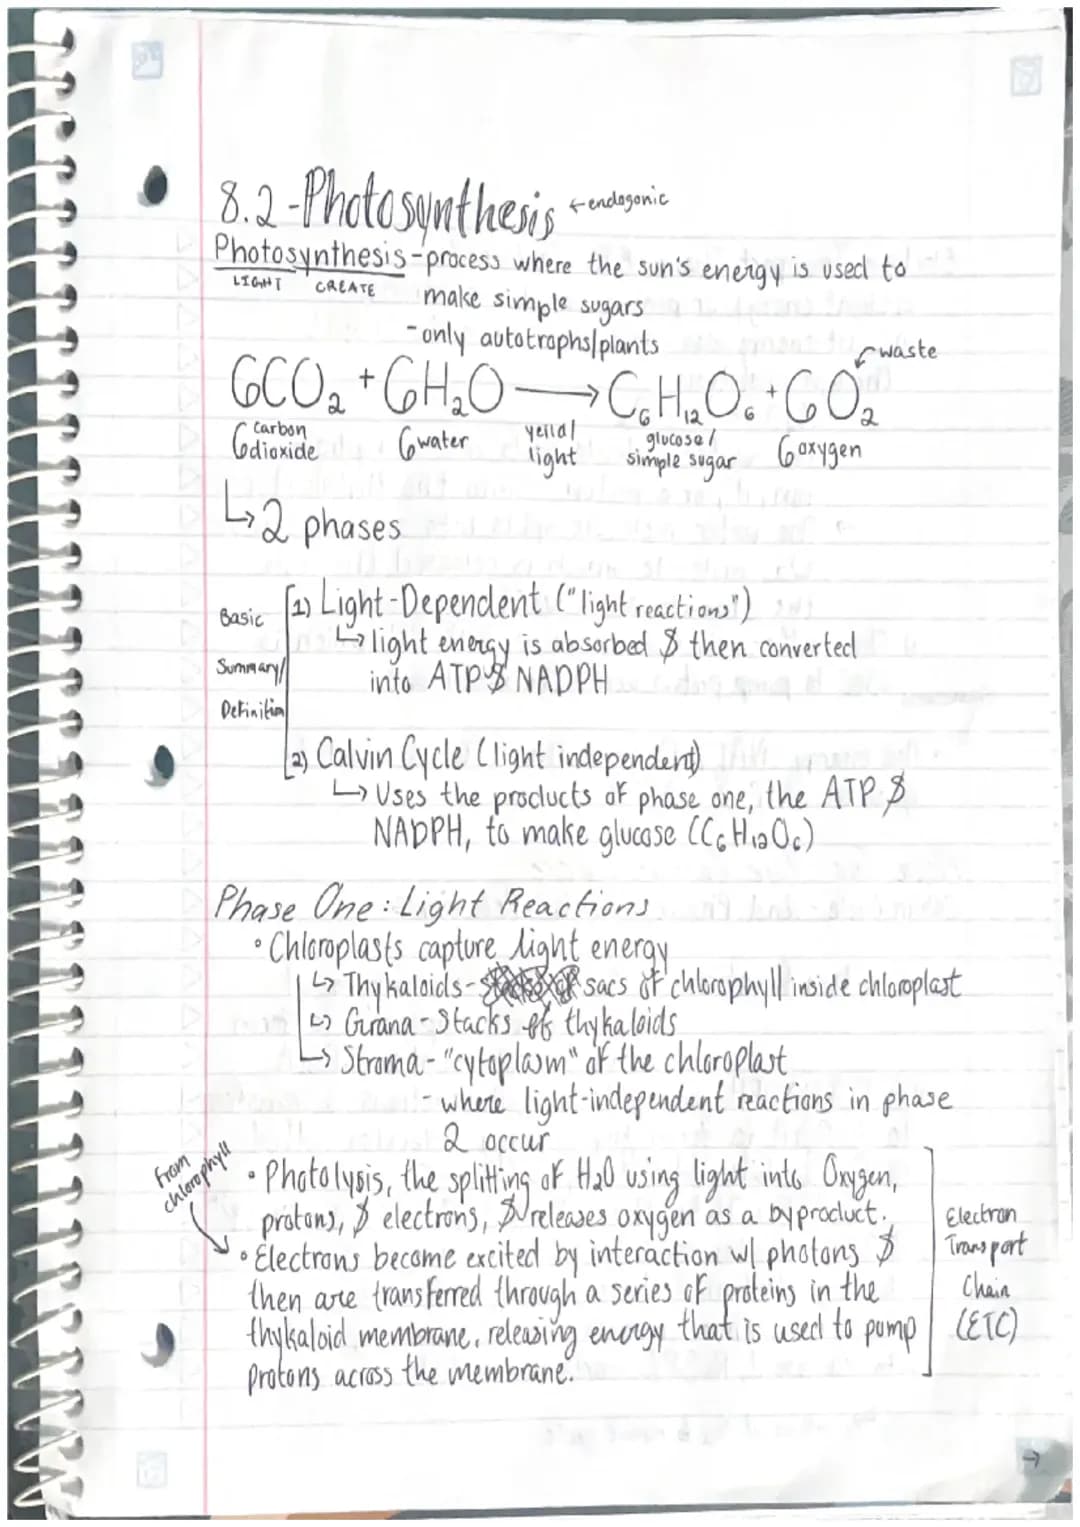 8.2-Photosynthesis ← endogonic
Photosynthesis-process where the sun's energy is used to
LIGHT CREATE make simple sugars
-only autotrophs/plants
waste
6CO₂ + 6H₂O → C₆H₁₂O₆ + 6O₂
6 carbon dioxide 6 water light glucose/simple sugar 6 oxygen
↳ 2 phases
Basic Summary/Definition
1) Light-Dependent ("light reactions")
↳ light energy is absorbed & then converted
into ATP & NADPH
2) Calvin Cycle (light independent)
↳ Uses the products of phase one, the ATP &
NADPH, to make glucose (C₆H₁₂O₆)
Phase One: Light Reactions
• Chloroplasts capture light energy
↳ Thykaloids- sacs of chlorophyll inside chloroplast
↳ Grana-Stacks of thykaloids
↳ Stroma-"cytoplasm" of the chloroplast
- where light-independent reactions in phase
2 occur
from chlorophyll
• Photolysis, the splitting of H₂O using light into Oxygen,
protons, & electrons, & releases oxygen as a byproduct.
• Electrons become excited by interaction w/ photons &
then are transferred through a series of proteins in the
thykaloid membrane, releasing energy that is used to pump
protons across the membrane.
Electron
Transport
Chain
(ETC)
→